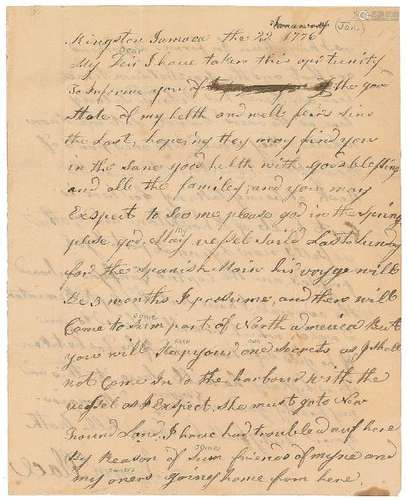 Januwary (Jan.)
Kingston Jamaca the 22 1776
Dear
My Sir I have taken this opirtunity
to inforrm you of the goo
State of my helth and well fair sinc
the Last, hoping they may find you
in the same good helth with gods blessing
and all the familey, and you may
Exspect to see me please god in the spring
plese god, May vessel Saild Last Sunday
for the Spanish Main his voyge will
be 3 months I posume, and then will
some
Come to sum part of North america But
keep own
you will Keap your one secrets as I shall
not Come in to the harbour with the
vessel as I Exspect, She must go to New
found Land, I have had troubled anf here
some
by Reason of sum friends of myne and
owners
my oners going home from here